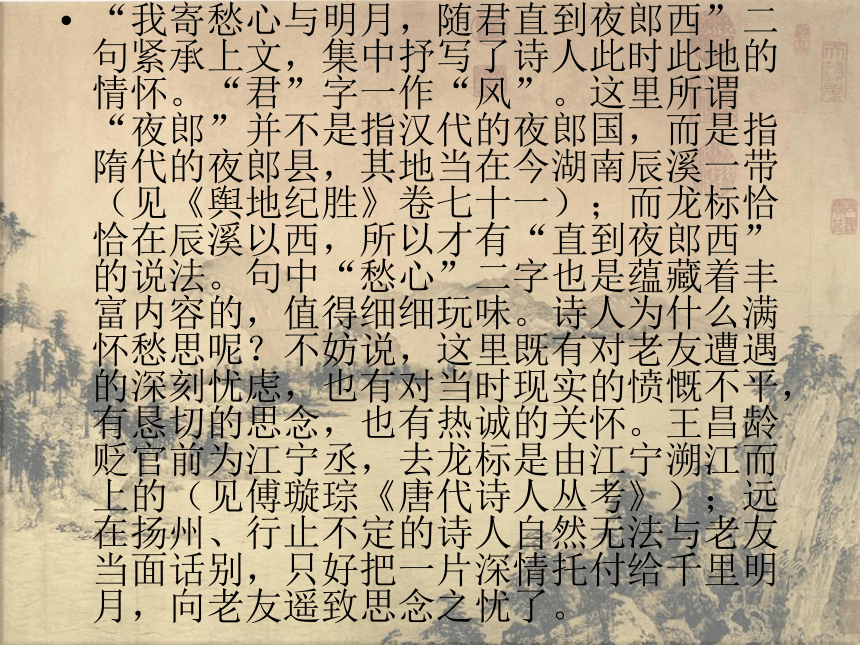 • “我寄愁心与明月，随君直到夜郎西”二
句紧承上文，集中抒写了诗人此时此地的
情怀。“君”字一作“风”。这里所谓
“夜郎”并不是指汉代的夜郎国，而是指
隋代的夜郎县，其地当在今湖南辰溪一带
（见《舆地纪胜》卷七十一）；而龙标恰
恰在辰溪以西，所以才有“直到夜郎西”
的说法。句中“愁心”二字也是蕴藏着丰
富内容的，值得细细玩味。诗人为什么满
怀愁思呢？不妨说，这里既有对老友遭遇
的深刻忧虑，也有对当时现实的愤慨不平，
有恳切的思念，也有热诚的关怀。王昌龄
贬官前为江宁丞，去龙标是由江宁溯江而
上的（见傅璇琮《唐代诗人丛考》）；远
在扬州、行止不定的诗人自然无法与老友
当面话别，只好把一片深情托付给千里明
月，向老友遥致思念之忧了。